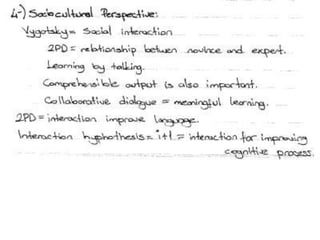 4-) Sociocultural Perspective:
Vygotsky = Social interaction
ZPD = reltionship betwen novince and expert.
Learning by talking.
Comprehensible output is also important.
Collaborative dialogue = meaningful learning.
ZPD = interaction improve language.
Interaction hyphothesis = i+1 = interaction for improving
cognitive process.